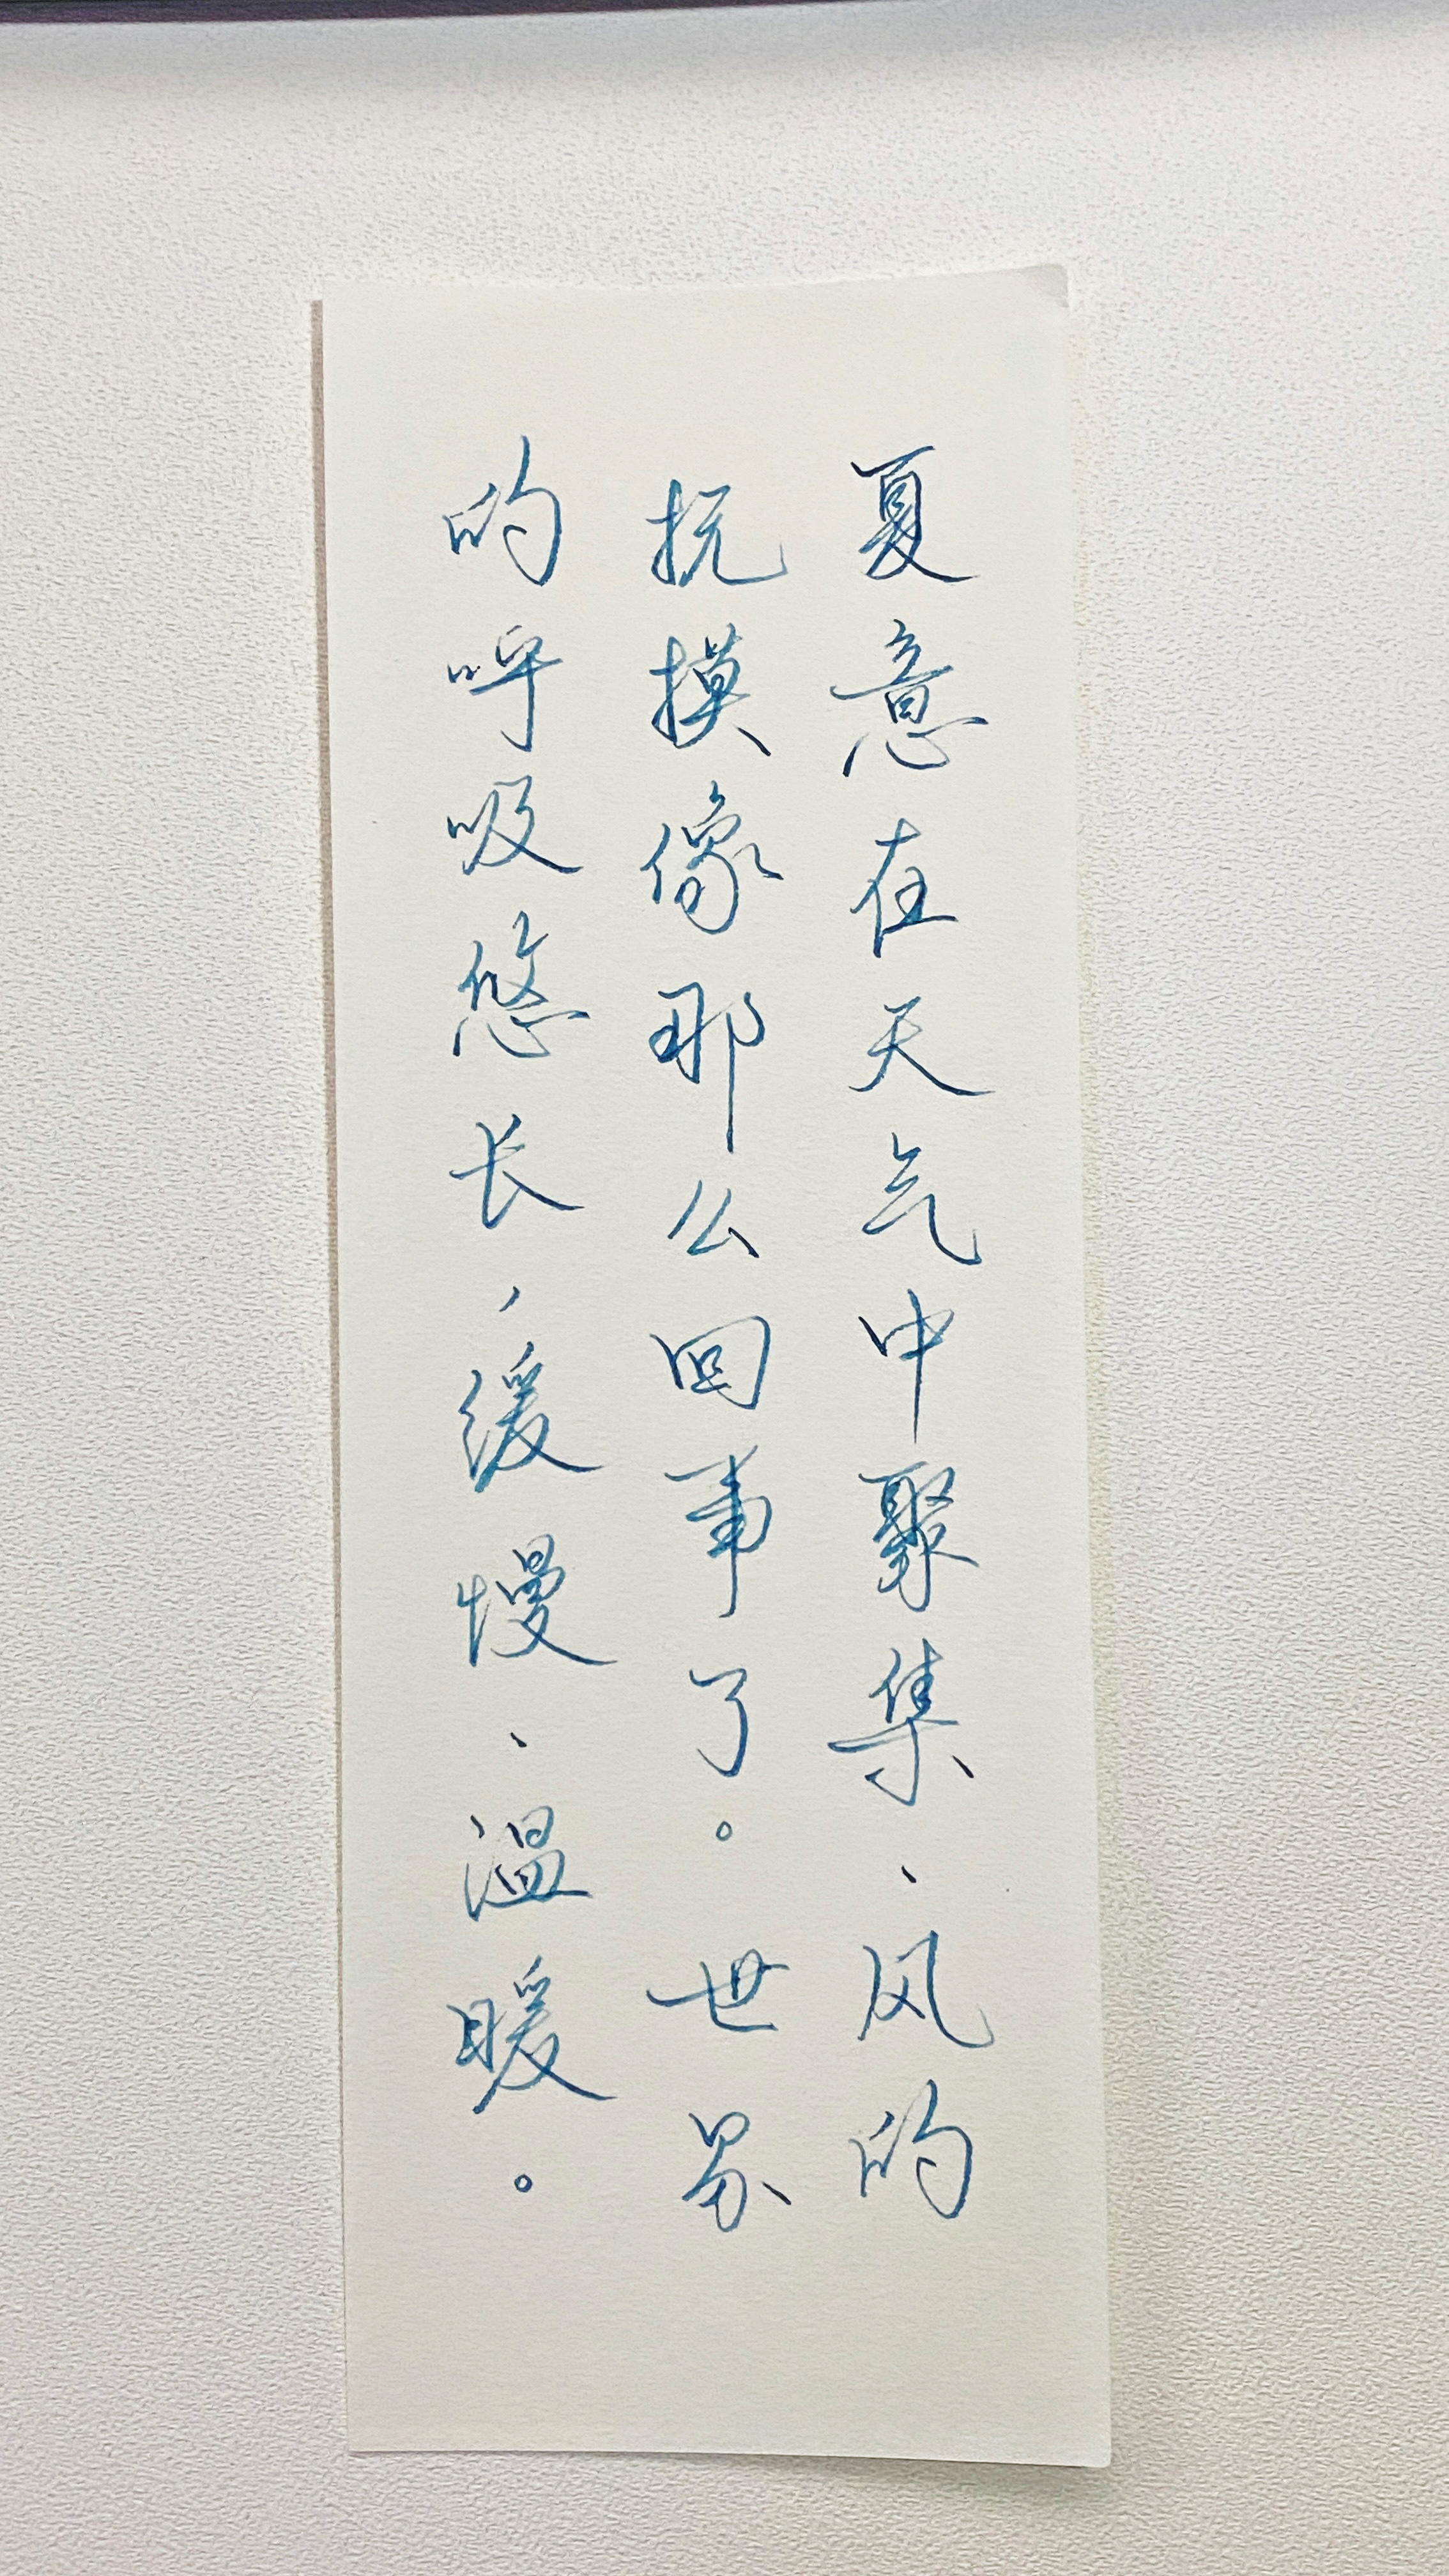 夏意在天气中聚集、风的
抚摸像那么回事了。世界
的呼吸悠长，缓慢、温暖。